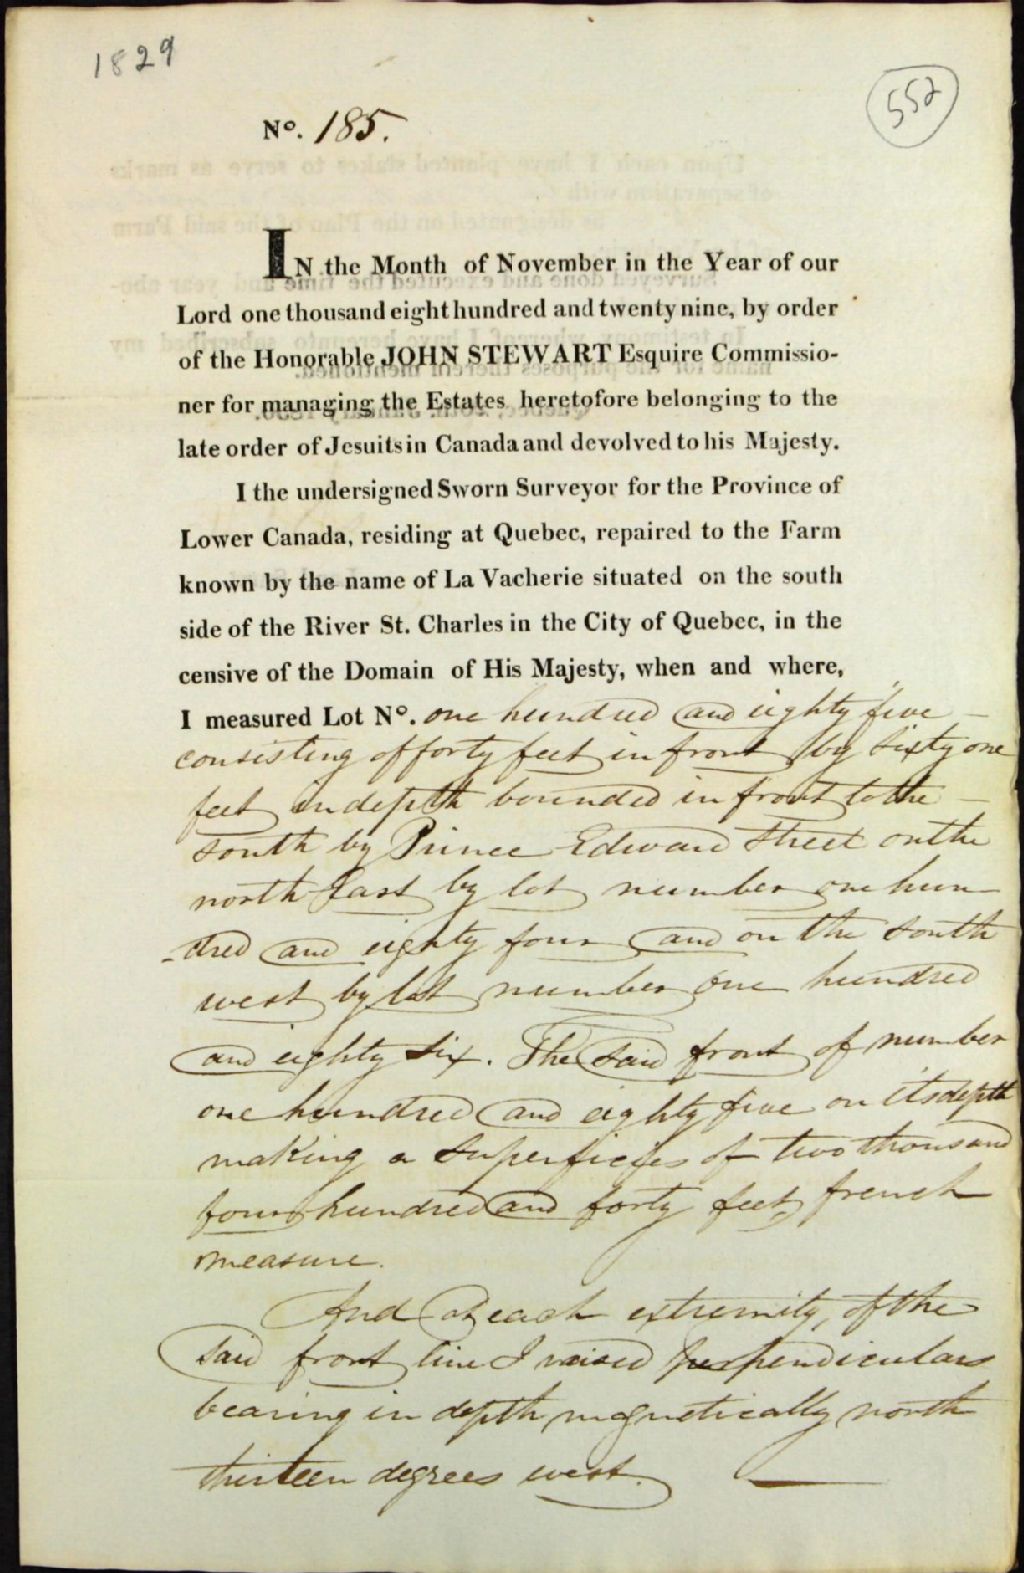 1829
552
No. 185.
IN the Month of November in the Year of our
Lord one thousand eight hundred and twenty nine, by order
of the Honorable JOHN STEWART Esquire Commissio-
ner for managing the Estates heretofore belonging to the
late order of Jesuits in Canada and devolved to his Majesty.
I the undersigned Sworn Surveyor for the Province of
Lower Canada, residing at Quebec, repaired to the Farm
known by the name of La Vacherie situated on the south
side of the River St. Charles in the City of Quebec, in the
censive of the Domain of His Majesty, when and where,
I measured Lot No. one hundred and eighty five –
consisting of forty feet in front by sixty one
feet in depth bounded in front to the –
south by Prince Edward Street on the
north East by lot number one hun-
-dred and eighty four and on the south
west by lot number one hundred
and eighty six. The said front of number
one hundred and eighty five on its depth
making a superficies of two thousand
four hundred and forty feet french
measure.
And at each extremity, of the
said front line I raised perpendiculars
bearing in depth magnetically north
thirteen degrees west.